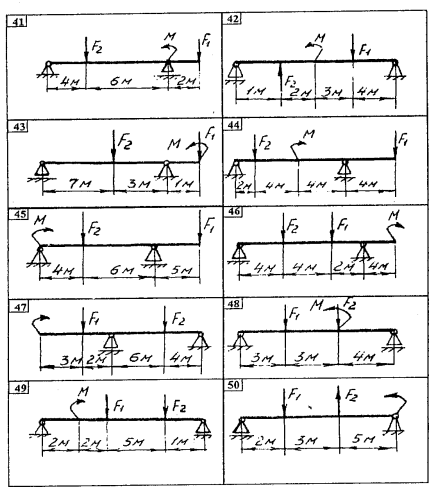 41
F₂ M F₁
4м 6м 2м
42
M F₁
F₂
1м 2м 3м 4м
43
F₂ M F₁
7м 3м 1м
44
F₂ M F₁
2м 4м 4м 4м
45
M F₂ F₁
4м 6м 5м
46
F₂ F₁ M
4м 4м 2м 4м
47
F₁ F₂
3м 2м 6м 4м
48
F₁ M F₂
3м 3м 4м
49
M F₁ F₂
2м 2м 5м 1м
50
F₁ F₂
2м 3м 5м